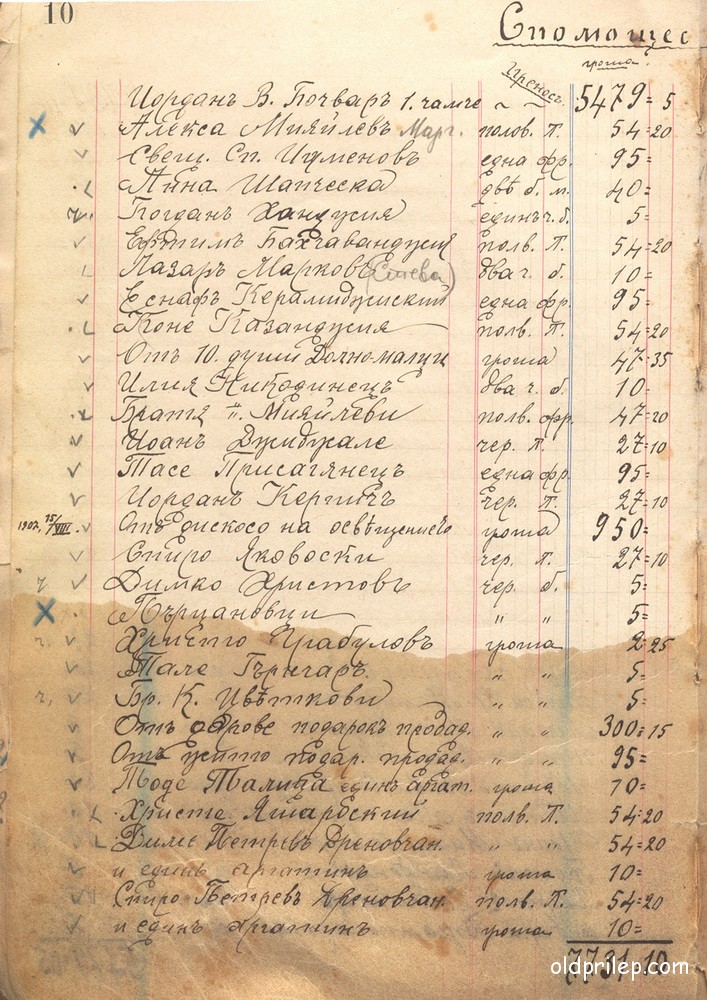 10
Спомощес
гроша
Преносъ
Иорданъ В. Бочваръ 1. чамче " " 5479=5
Алекса Мияйлевъ Марг. полов. Л. 54=20
Свещ. Сп. Игуменовъ една фр. 95=
Анна Шапческа двѣ б. м. 40=
Богданъ Ханджия единъ ч. б. 5=
Ефтимъ полв. Л. 54=20
Лазаръ Марковъ два ч. б. 10=
Еснафъ Керамиджиский една фр. 95=
Коне Казанджия полв. Л. 54=20
Отъ 10. души Долно-малци гроша 47=35
Илия Никодинецъ два ч. б. 10=
Братя П. Мияйлеви полв. фр. 47=20
Иоанъ Джиджале чер. Л. 27=10
Тасе Присагянецъ една фр. 95=
Иорданъ чер. Л. 27=10
1902, 15/VIII. Отъ дискосо на освѣщението гроша 950=
Спиро Яковоски чер. Л. 27=10
Димко Христовъ чер. б. 5=
" " 5=
Христо Грабуловъ гроша 2=25
Тале Гърнчаръ " " 5=
Бр. К. Цвѣткови " " 5=
Отъ дарове подарокъ продад. " " 300=15
Отъ подар. продад. " " 95=
единъ аргат. гроша 70=
Христе полв. Л. 54=20
Диме Петревъ Дреновчан. " " 54=20
и единъ аргатинъ гроша 10=
Спиро Петревъ Дреновчан. полв. Л. 54=20
и единъ аргатинъ гроша 10=
7731.10
oldprilep.com